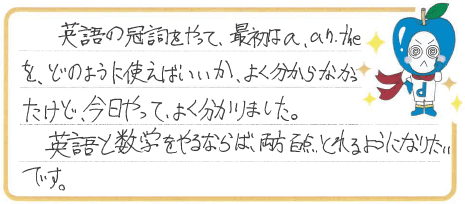 英語の冠詞をやって、最初はa,an,the
を、どのように使えばいいか、よく分からなかっ
たけど、今日やって、よく分かりました。
英語と数学をやるならば、両方百点、とれるようになりたい
です。
d